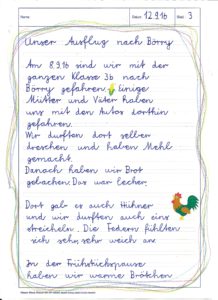 Name: Datum: 12.9.16 Blatt: 3
Unser Ausflug nach Börry
Am 8.9.16 sind wir mit der
ganzen Klasse 3b nach
Börry gefahren. Einige
Mütter und Väter haben
uns mit den Autos dorthin
gefahren.
Wir durften dort selber
dreschen und haben Mehl
gemacht.
Danach haben wir Brot
gebacken. Das war lecker.
Dort gab es auch Hühner
und wir durften auch eins
streicheln. Die Federn fühlten
sich sehr, sehr weich an.
In der Frühstückspause
haben wir warme Brötchen